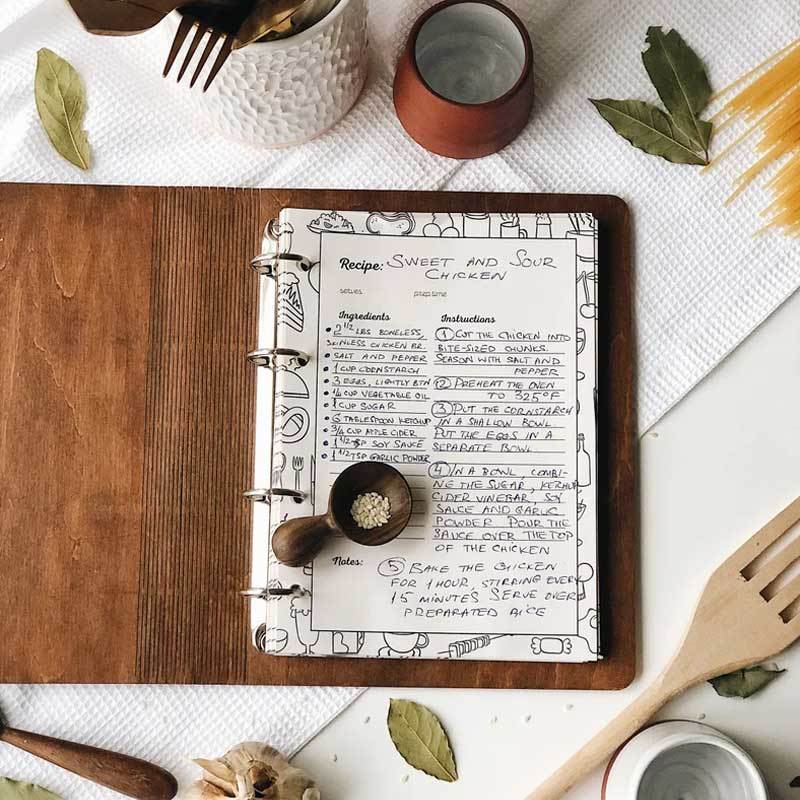 Recipe: SWEET AND SOUR
CHICKEN
serves preptime
Ingredients
• 2 1/2 LBS BONELESS,
SKINLESS CHICKEN BR.
• SALT AND PEPPER
• 1 CUP CORNSTARCH
• 3 EGGS, LIGHTLY BTN
• 1/4 CUP VEGETABLE OIL
• 1 CUP SUGAR
• 6 TABLESPOON KETCHUP
• 3/4 CUP APPLE CIDER
• 1 1/2 SOY SAUCE
• 1 1/2 TSP GARLIC POWDER
Instructions
1 CUT THE CHICKEN INTO
BITE-SIZED CHUNKS.
SEASON WITH SALT AND
PEPPER
2 PREHEAT THE OVEN
TO 325°F
3 PUT THE CORNSTARCH
IN A SHALLOW BOWL
PUT THE EGGS IN A
SEPARATE BOWL
4 IN A BOWL, COMBI-
NE THE SUGAR, KETCHUP
CIDER VINEGAR, SOY
SAUCE AND GARLIC
POWDER POUR THE
SAUCE OVER THE TOP
OF THE CHICKEN
Notes: 5 BAKE THE CHICKEN
FOR 1 HOUR, STIRRING EVERY
15 MINUTES SERVE OVER
PREPARATED RICE